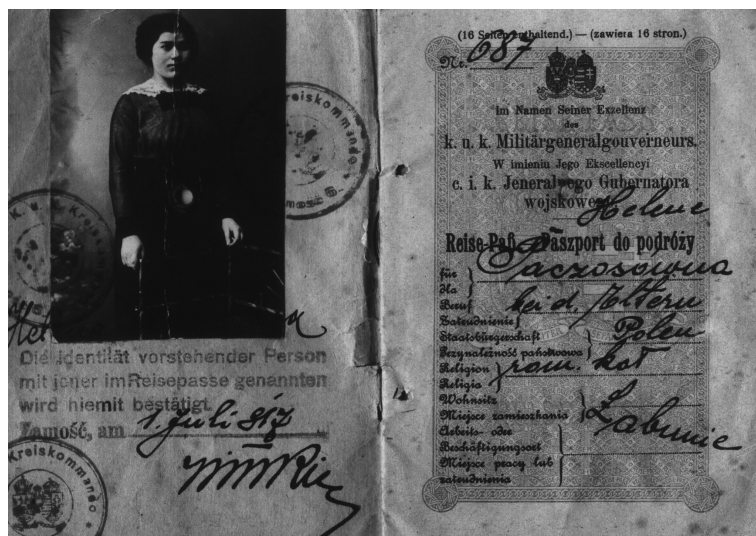 Kreiskommando
Zamość
K. u. K. Kreisko
Die Identität vorstehender Person
mit jener im Reisepasse genannten
wird hiemit bestätigt.
Zamość, am 1. Juli 917
Kreiskommando
(16 Seiten enthaltend.) — (zawiera 16 stron.)
Nr. 687
im Namen Seiner Exzellenz
des
k. u. k. Militärgeneralgouverneurs.
W imieniu Jego Ekscellencyi
c. i k. Jeneralnego Gubernatora
wojskowego
Helene
Reise-Paß — Paszport do podróży
für
dla
Paczosówna
Beruf
Zatrudnienie
bei d. Eltern
Staatsbürgerschaft
Przynależność państwowa
Polen
Religion
Religia
röm. kat
Wohnsitz
Miejsce zamieszkania
Łabunie
Arbeits- oder
Beschäftigungsort
Miejsce pracy lub
zatrudnienia